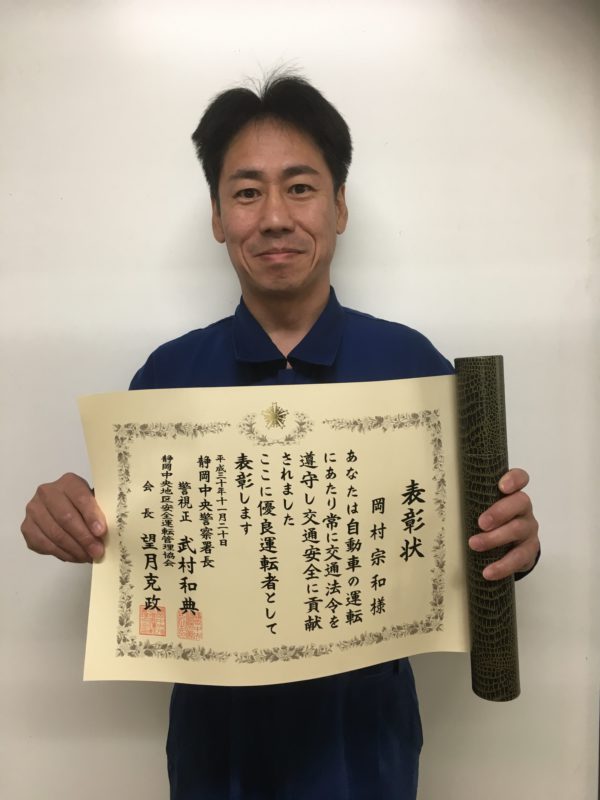 表彰状
岡村宗和様
あなたは自動車の運転
にあたり常に交通法令を
遵守し交通安全に貢献
されました
ここに優良運転者として
表彰します
平成三十年十一月二十日
静岡中央警察署長
警視正 武村和典
静岡中央地区安全運転管理協会
会長 望月克政